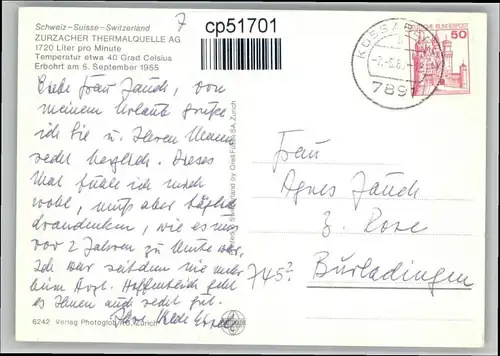 Schweiz-Suisse-Switzerland
ZURZACHER THERMALQUELLE AG
1720 Liter pro Minute
Temperatur etwa 40 Grad Celsius
Erbohrt am 5. September 1955
7
cp51701
DEUTSCHE BUNDESPOST
50
789
Liebe Frau Jauch, von
meinem Urlaube grüße
ich Sie u. Ihren Mann
recht herzlich. Dieses
Mal fühle ich mich
wohl, muß aber täglich
drandenken, wie es mir
vor 2 Jahren zu Mute war.
Ich war seitdem nie mehr
beim Arzt. Hoffentlich geht
es Ihnen auch recht gut.
Ihre Hilde
Printed in Switzerland by Orell Füssli SA, Zürich
6242 Verlag Photoglob AG, Zürich
Frau
Agnes Jauch
z. Rose
7452
Burladingen